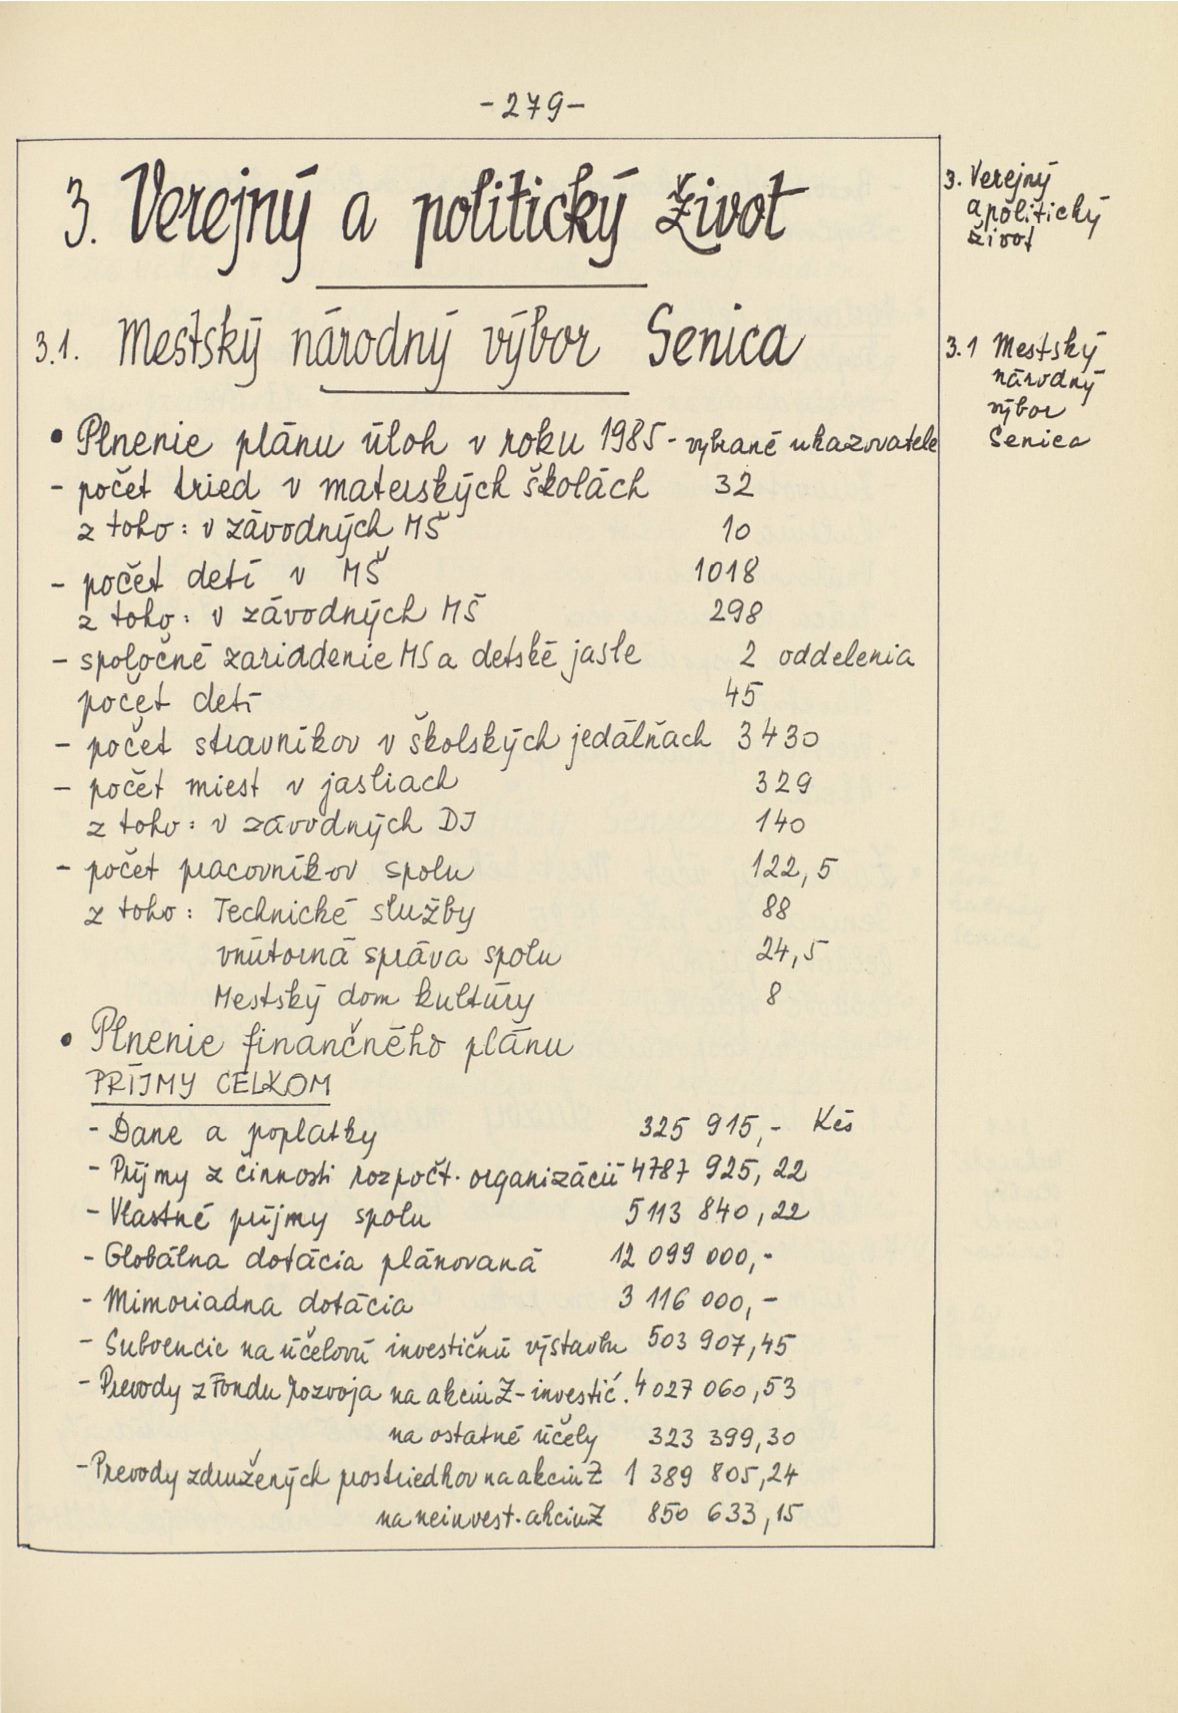 -279-
3. Verejný a politický život
3.1. Mestský národný výbor Senica
• Plnenie plánu úloh v roku 1985 - vybrané ukazovatele
- počet tried v materských školách 32
z toho: v závodných MŠ 10
- počet detí v MŠ 1018
z toho: v závodných MŠ 298
- spoločné zariadenie MŠ a detské jasle 2 oddelenia
počet detí 45
- počet stravníkov v školských jedálňach 3430
- počet miest v jasliach 329
z toho: v závodných DJ 140
- počet pracovníkov spolu 122,5
z toho: Technické služby 88
vnútorná správa spolu 24,5
Mestský dom kultúry 8
• Plnenie finančného plánu
PRÍJMY CELKOM
- Dane a poplatky 325 915,- Kčs
- Príjmy z činnosti rozpočt. organizácií 4787 925,22
- Vlastné príjmy spolu 5 113 840,22
- Globálna dotácia plánovaná 12 099 000,-
- Mimoriadna dotácia 3 116 000,-
- Subvencie na účelovú investičnú výstavbu 503 907,45
- Prevody z Fondu rozvoja na akciu Z-investič. 4 027 060,53
na ostatné účely 323 399,30
- Prevody združených prostriedkov na akciu Z 1 389 805,24
na neinvest. akciu Z 850 633,15
3. Verejný
a politický
život
3.1 Mestský
národný
výbor
Senica